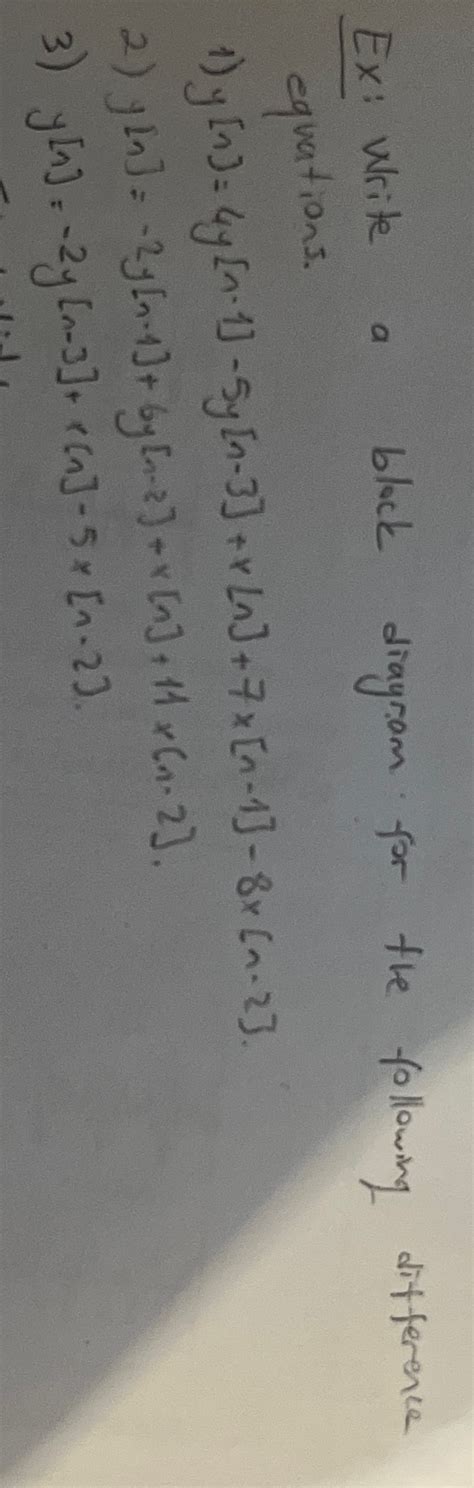 Ex: Write a block diagram for the following difference
equations.
1) y[n] = 4y[n-1] - 5y[n-3] + x[n] + 7x[n-1] - 8x[n-2].
2) y[n] = -2y[n-1] + 6y[n-2] + x[n] + 11x[n-2].
3) y[n] = -2y[n-3] + x[n] - 5x[n-2].